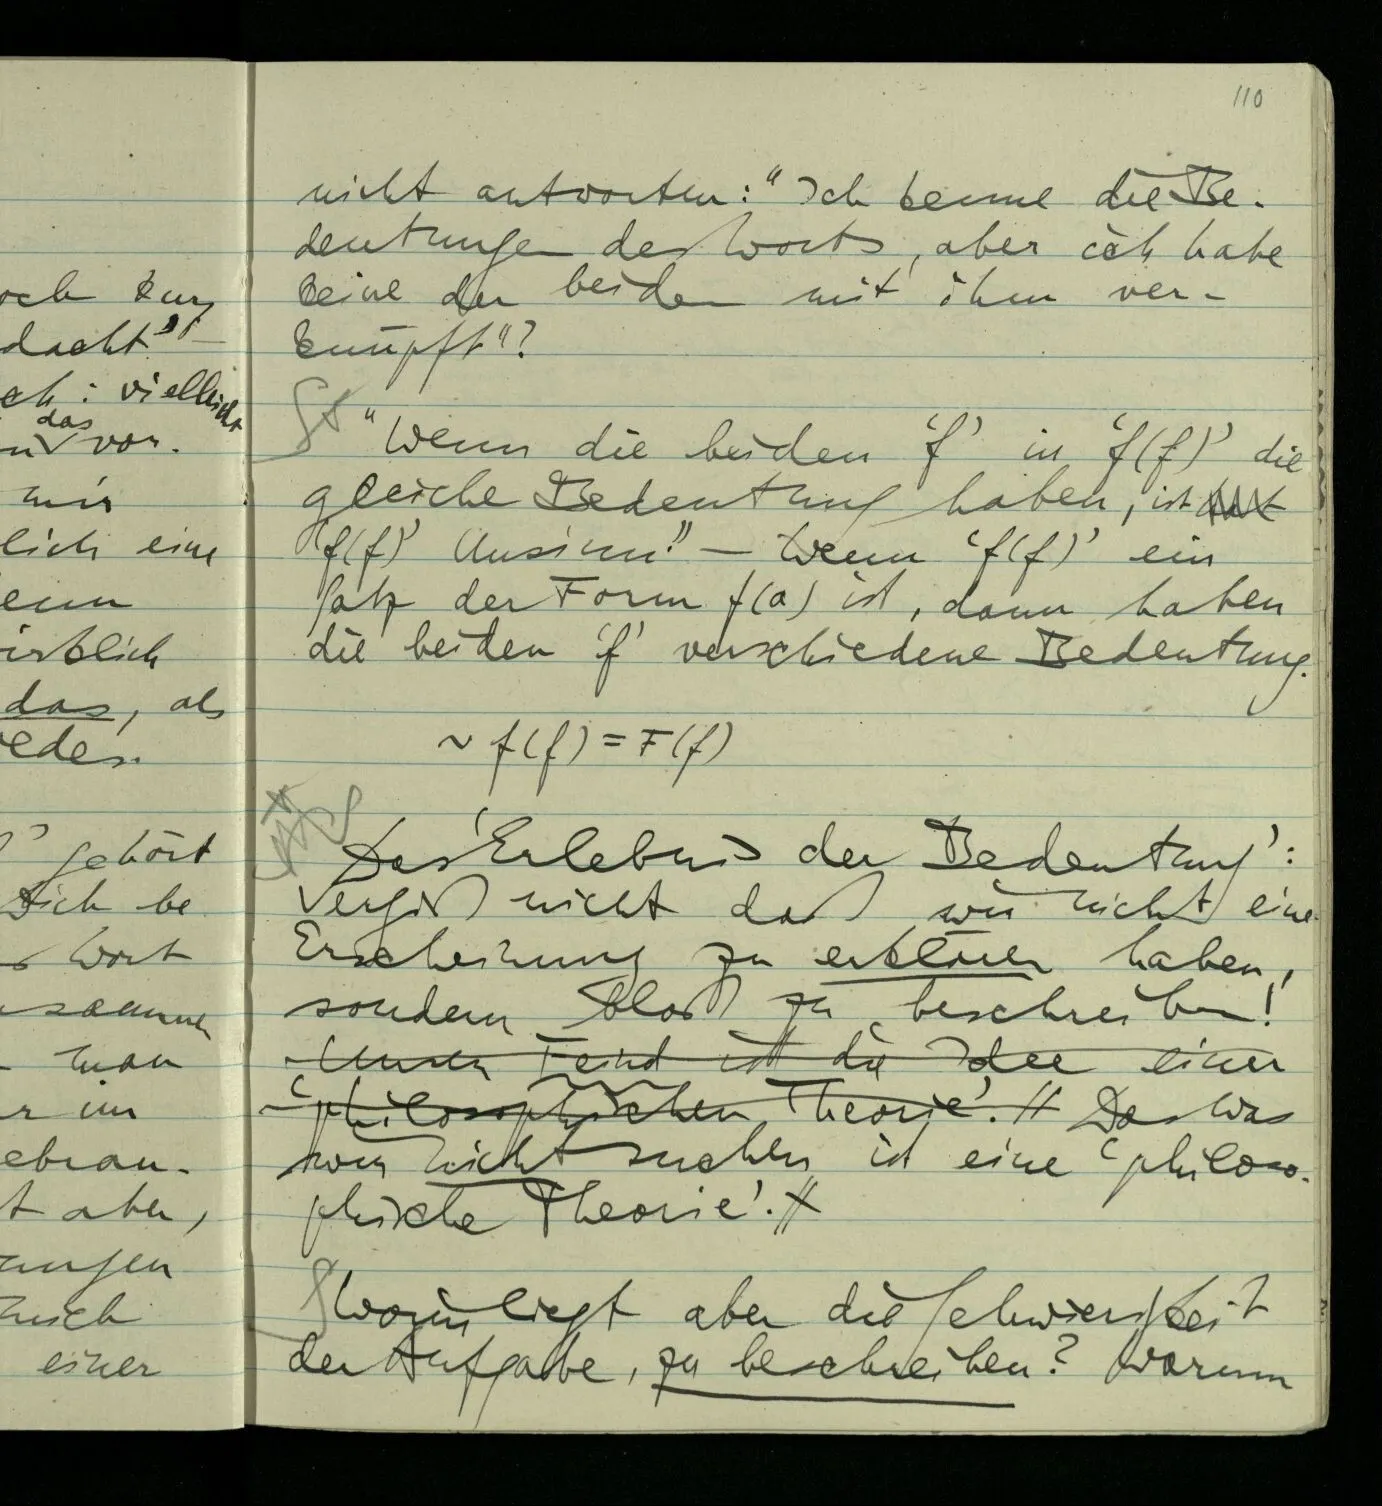 110
nicht antworten: "Ich kenne die Be-
deutungen des Worts, aber ich habe
keine der beiden mit ihm ver-
knüpft"?
"Wenn die beiden 'f' in 'f(f)' die
gleiche Bedeutung haben, ist
'f(f)' Unsinn." — Wenn 'f(f)' ein
Satz der Form f(a) ist, dann haben
die beiden 'f' verschiedene Bedeutung.
~f(f) = F(f)
Das 'Erlebnis der Bedeutung':
Vergiß nicht daß wir nicht eine
Erscheinung zu erklären haben,
sondern bloß zu beschreiben!
Unser Feind ist die Idee einer
'philosophischen Theorie'. // Das was
wir nicht suchen ist eine 'philoso-
phische Theorie'. //
Worin liegt aber die Schwierigkeit
der Aufgabe, zu beschreiben? Warum
och kurz
dacht" –
ch: vielleicht
das
vor.
mir
lich eine
enn
irklich
das, als
edes.
' gehört
sich be
Wort
sammen
man
r im
ebrau-
t aber,
ungen
mich
einer